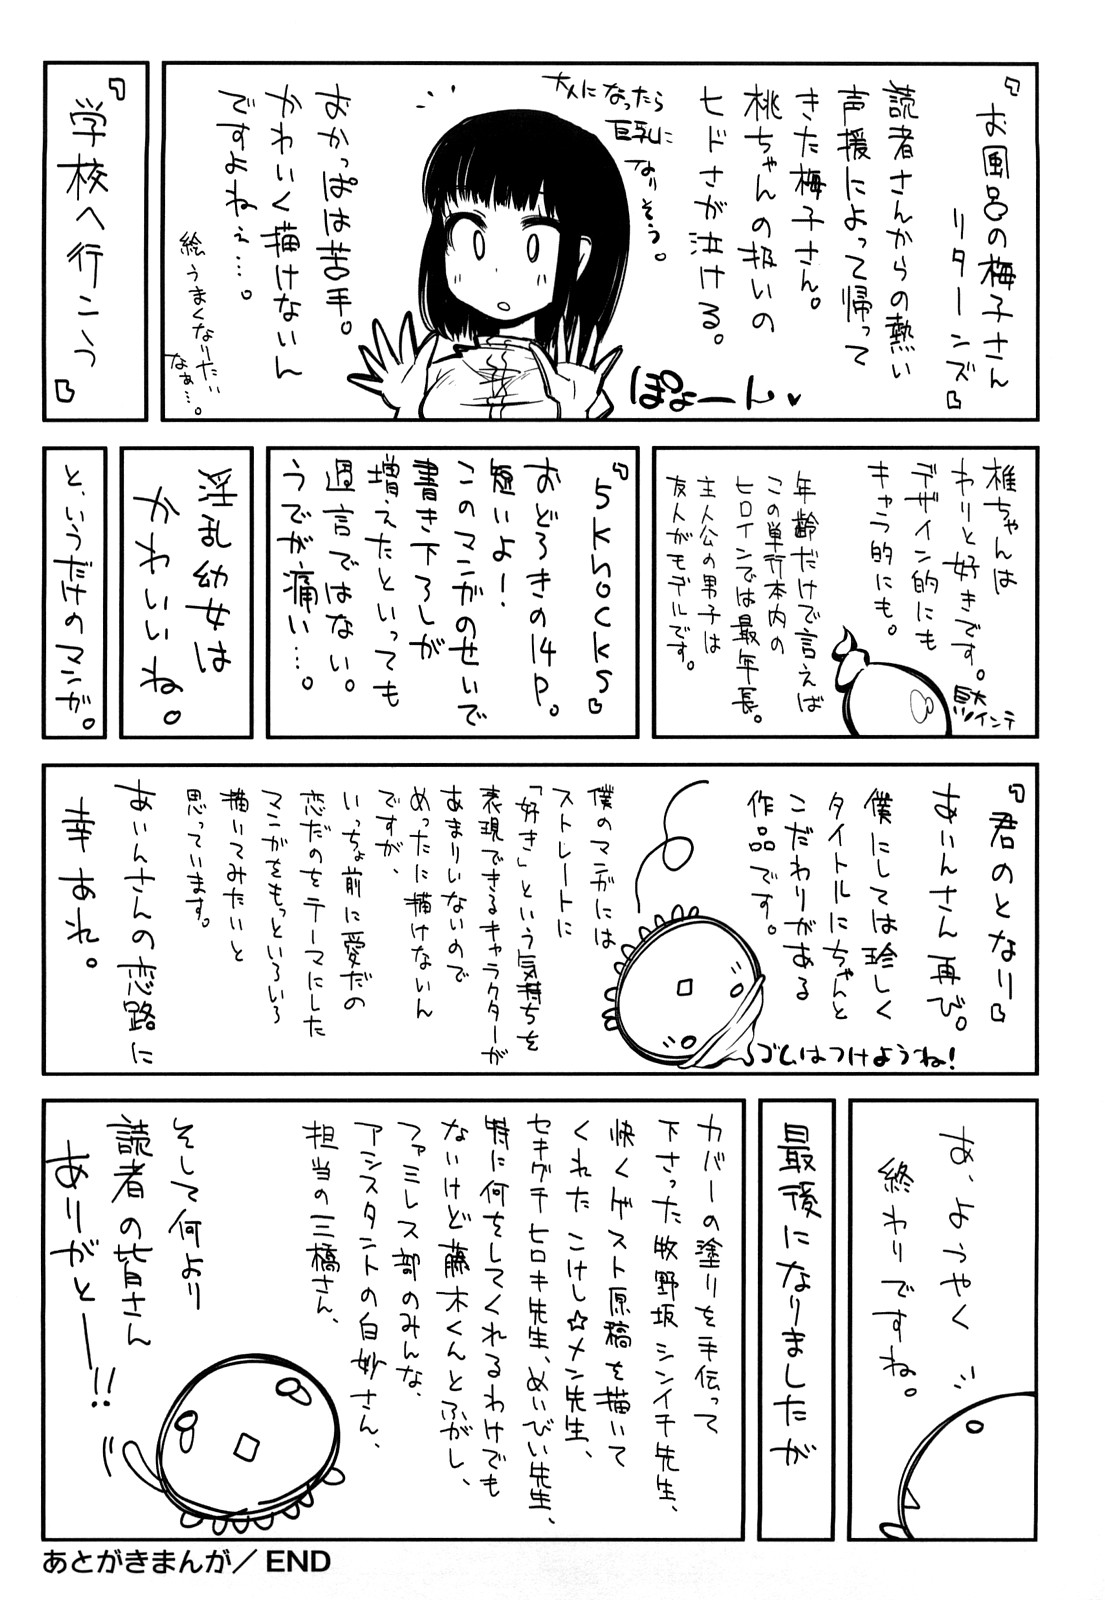 『お風呂の梅子さん
リターンズ』
読者さんからの熱い
声援によって帰って
きた梅子さん。
桃ちゃんの扱いの
ヒドさが泣ける。
おかっぱは苦手。
かわいく描けないん
ですよねぇ…。
絵うまくなりたい
なぁ…。
ぽよーん♥
『学校へ行こう』
椎ちゃんは
わりと好きです。
デザイン的にも
キャラ的にも。
年齢だけで言えば
この単行本内の
ヒロインでは最年長。
主人公の男子は
友人がモデルです。
『5knocks』
おどろきの14p。
短いよ!
このマンガのせいで
書き下ろしが
増えたといっても
過言ではない。
うでが痛い…。
と、いうだけのマンガ。
『君のとなり』
あいんさん再び。
僕にしては珍しく
タイトルにちゃんと
こだわりがある
作品です。
ゴムはつけようね!
僕のマンガには
ストレートに
「好き」という気持ちを
表現できるキャラクターが
あまりいないので
めったに描けないん
ですが、
いっちょ前に愛だの
恋だのをテーマにした
マンガをもっといろいろ
描いてみたいと
思っています。
あいんさんの恋路に
幸あれ。
あ、ようやく
終わりですね。
最後になりましたが
カバーの塗りを手伝って
下さった牧野坂シンイチ先生、
快くゲスト原稿を描いて
くれた こけし☆メン先生、
セキグチヒロキ先生、めいびい先生、
特に何をしてくれるわけでも
ないけど藤木くんとふがし、
ファミレス部のみんな、
アシスタントの白妙さん、
担当の三橋さん、
そして何より
読者の皆さん
ありがとー!!
あとがきまんが／END